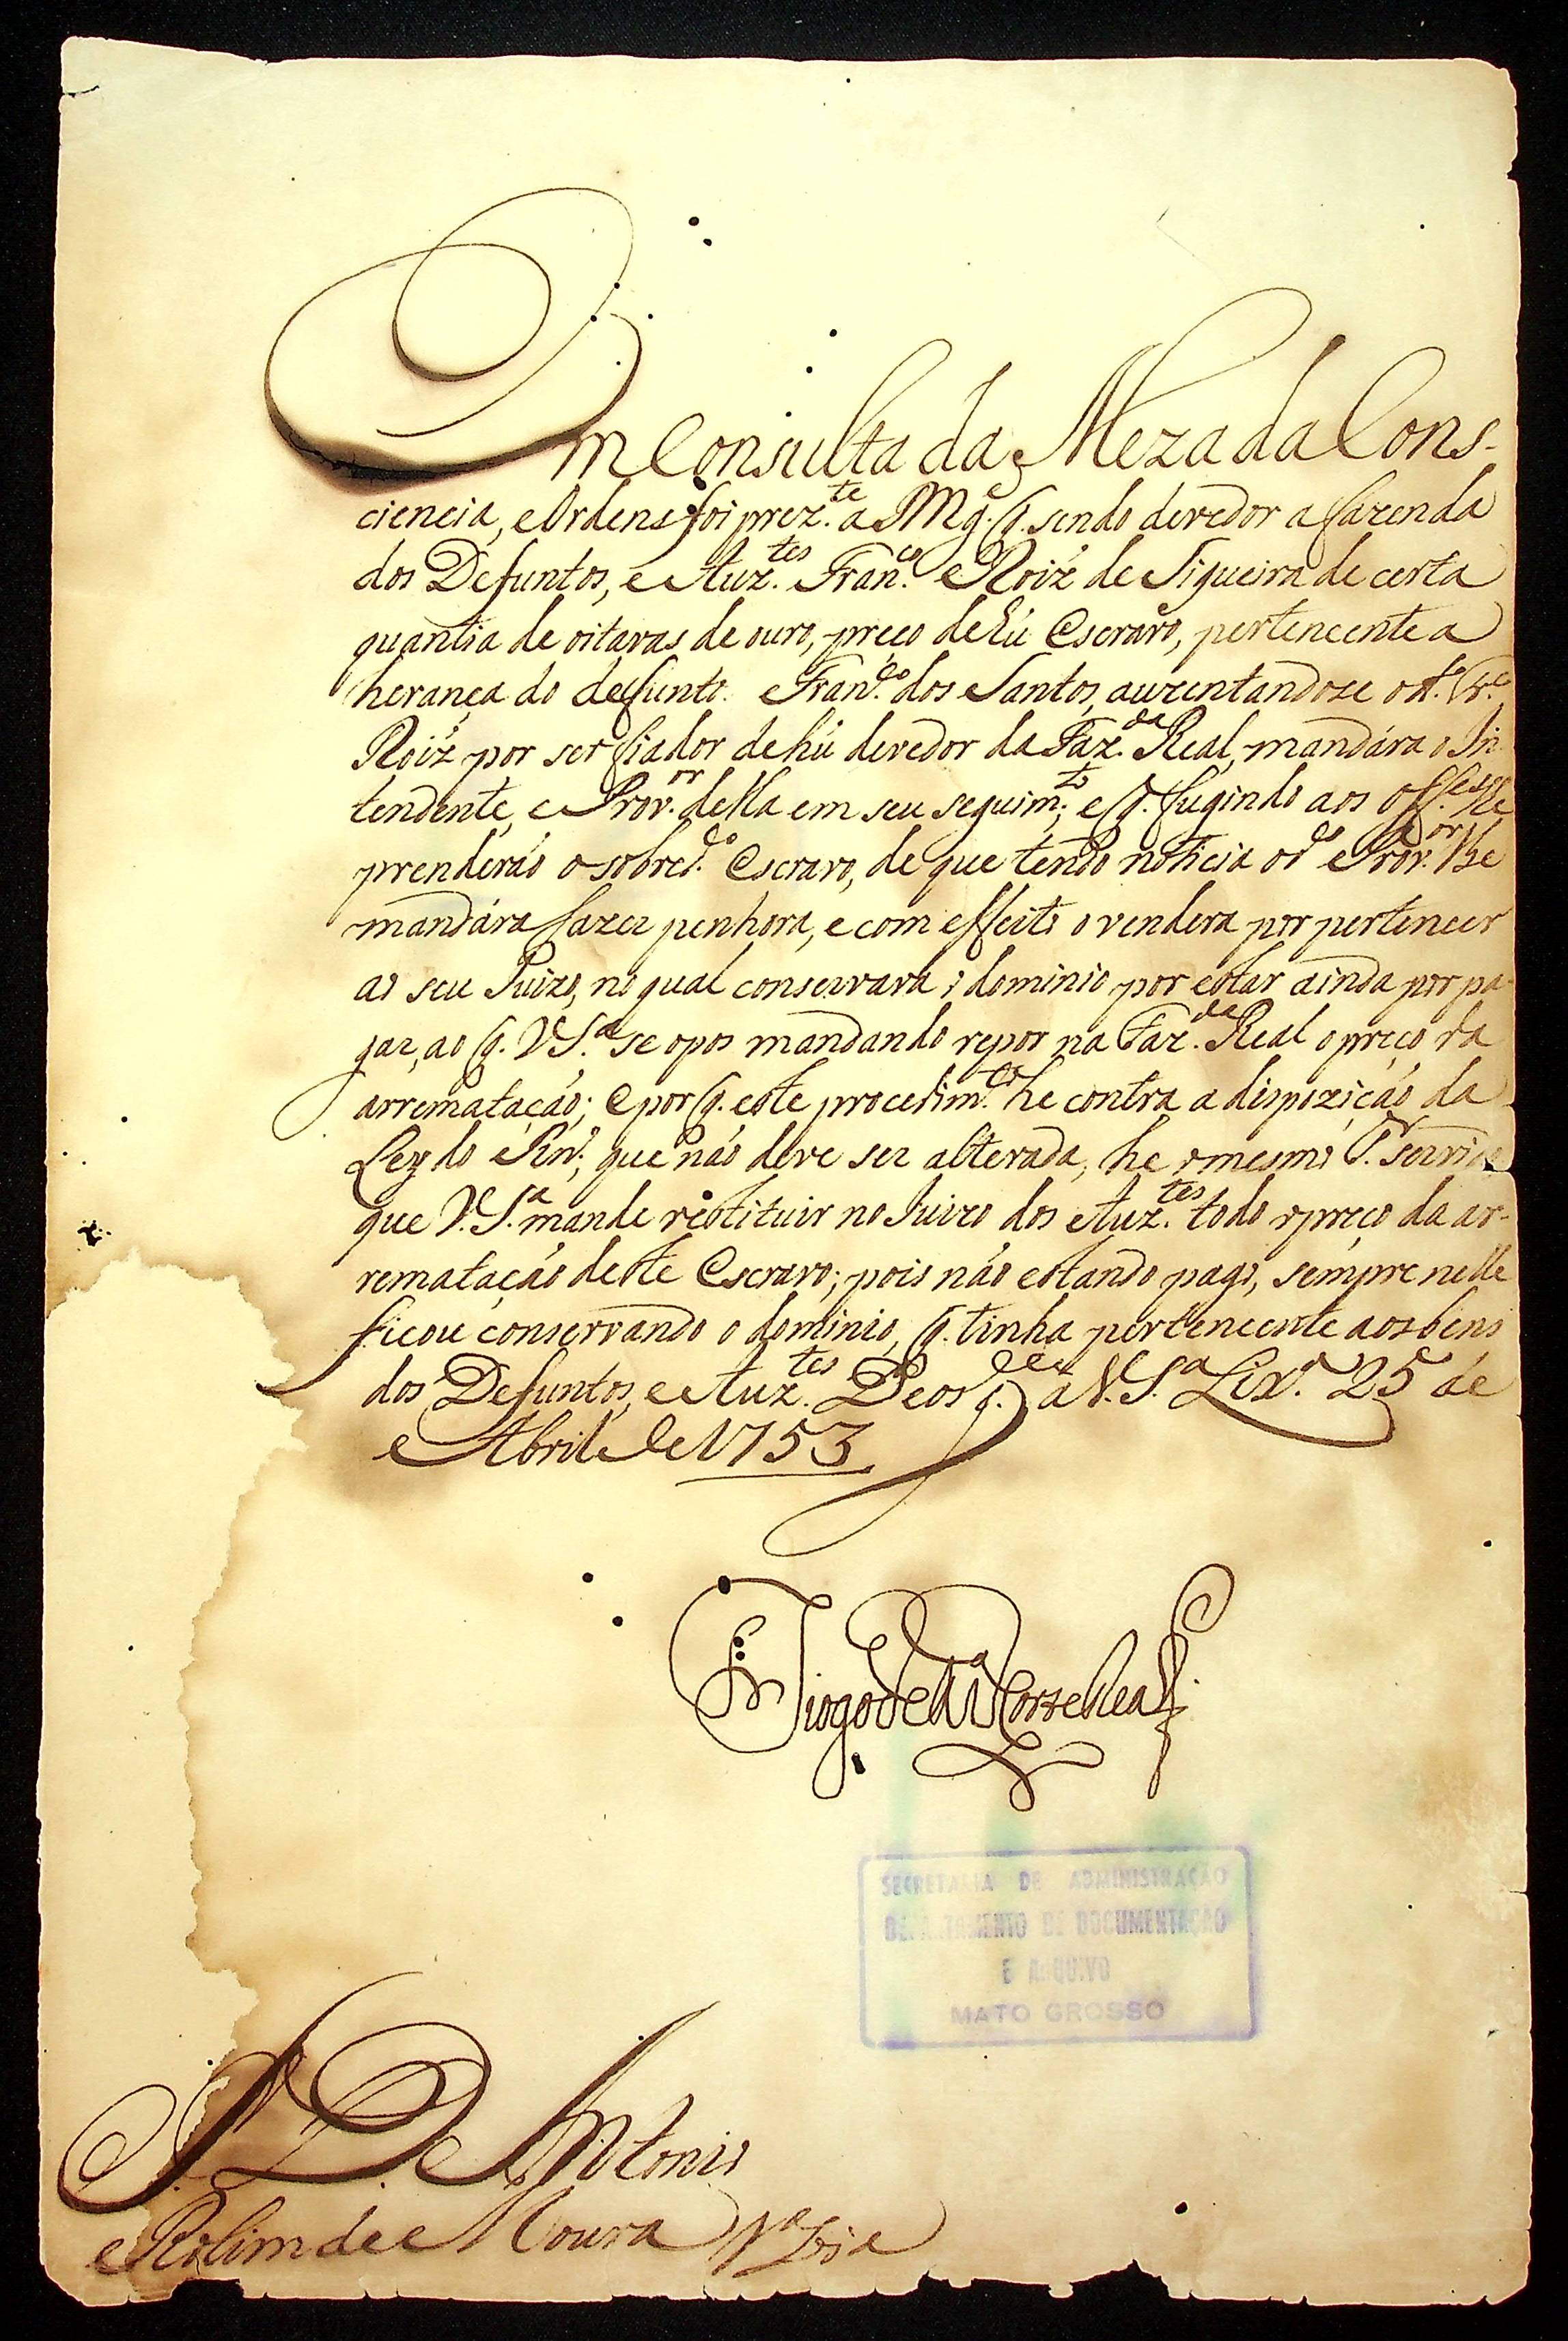 Em Consulta da Meza da Cons-
ciencia, e Ordens foi prez.te a S Mg.e q. sendo devedor a fazenda
dos Defuntos, e Auz.tes Fran.co Roiz de Siqueira de certa
quantia de oitavas de ouro, preço de hú Escravo, pertencente a
herança do defunto Fran.co dos Santos, auzentandose o d.o Fr.co
Roiz por ser fiador de hú devedor da Faz.da Real, mandára o In
tendente, e Prov.or della em seu seguim.to; e q. fugindo aos off.es lhe
prenderáo o sobred.o Escravo, de que tendo noticia o d.o Prov.or lhe
mandára fazer penhora, e com effeito o vendera por pertencer
ao seu Juizo, no qual conservava o dominio por estar ainda por pa-
gar, ao q. V S.a se opos mandando repor na Faz.da Real o preço da
arremataçáo; e por q. este procedim.to he contra a dispoziçáo da
Ley do Rn.o; que náo deve ser alterada, he o mesmo S.r servido
que V. S.a mande restituir no Juizo dos Auz.tes todo o preço da ar-
remataçáo deste Escravo; pois náo estando pago, sempre nelle
ficou conservando o dominio, q. tinha pertencente aos bens
dos Defuntos, e Auz.tes Deos g.de a V. S.a Lix.a 25 de
Abril de 1753
Diogo de M.ça Corte Real
SECRETARIA DE ADMINISTRAÇÃO
DEPARTAMENTO DE DOCUMENTAÇÃO
E ARQUIVO
MATO GROSSO
S. D. Antonio
Rolim de Moura